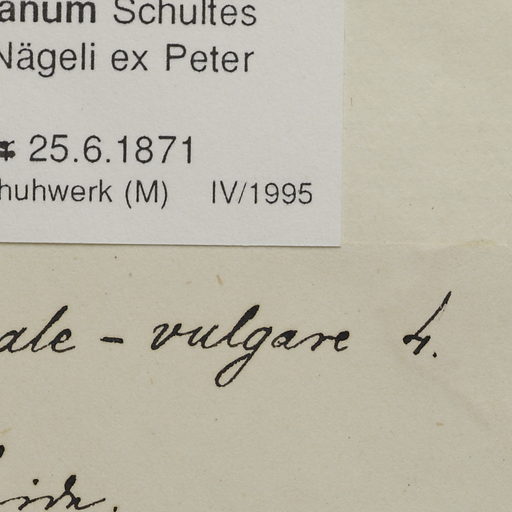 anum Schultes
Nägeli ex Peter
25.6.1871
huhwerk (M) IV/1995
ale - vulgare 4.